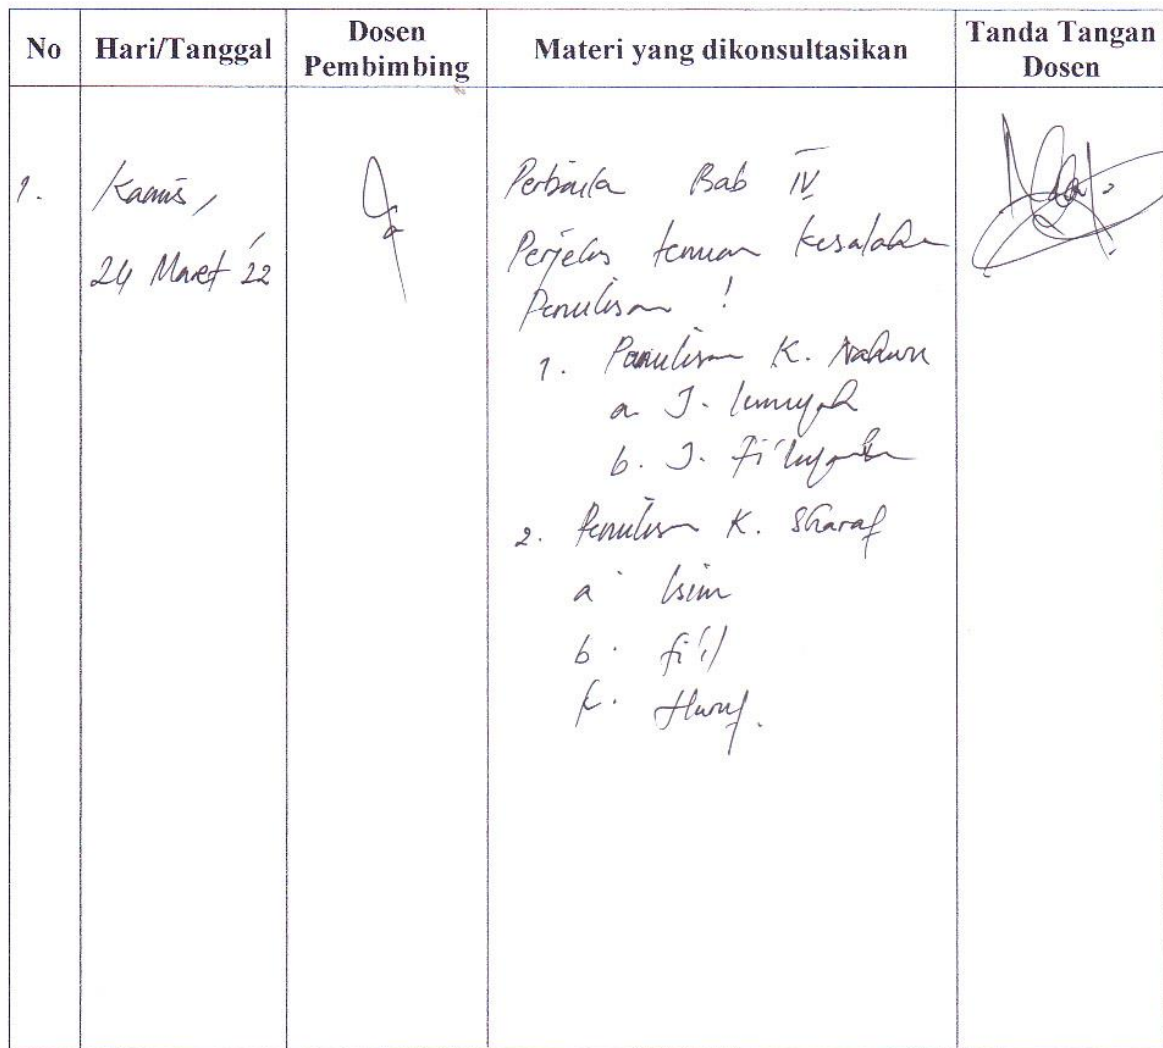 No Hari/Tanggal Dosen Pembimbing Materi yang dikonsultasikan Tanda Tangan Dosen
1. Kamis,
24 Maret '22
Perbaiki Bab IV
Perjelas temuan kesalahan
Penulisan !
1. Penulisan K. Nahwu
a. J. Ismiyah
b. J. Fi'liyah
2. Penulisan K. Sharaf
a. Isim
b. fi'il
c. Huruf.